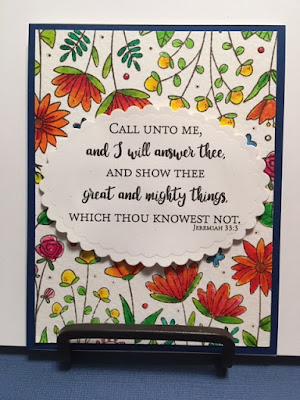 CALL UNTO ME,
and I will answer thee,
AND SHOW THEE
great and mighty things,
WHICH THOU KNOWEST NOT.
JEREMIAH 33:3